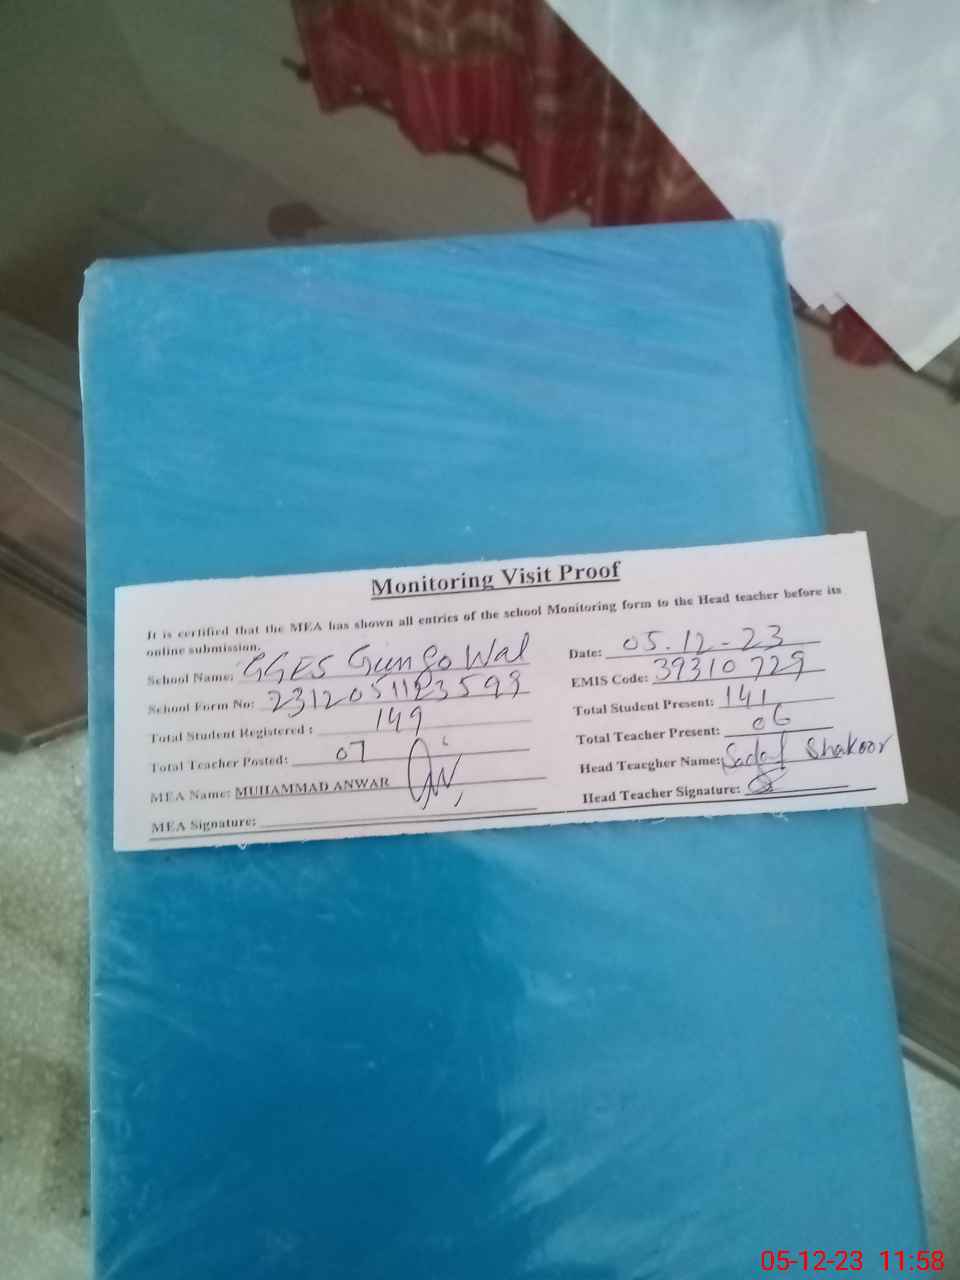 Monitoring Visit Proof
It is certified that the MEA has shown all entries of the school Monitoring form to the Head teacher before its
online submission.
School Name: GGES Gungo Wal
Date: 05.12-23
School Form No:
EMIS Code: 39310729
Total Student Registered : 149
Total Student Present: 141
Total Teacher Posted: 07
Total Teacher Present: 06
MEA Name: MUHAMMAD ANWAR
Head Teacgher Name: Sadaf Shakoor
MEA Signature:
Head Teacher Signature:
05-12-23 11:58